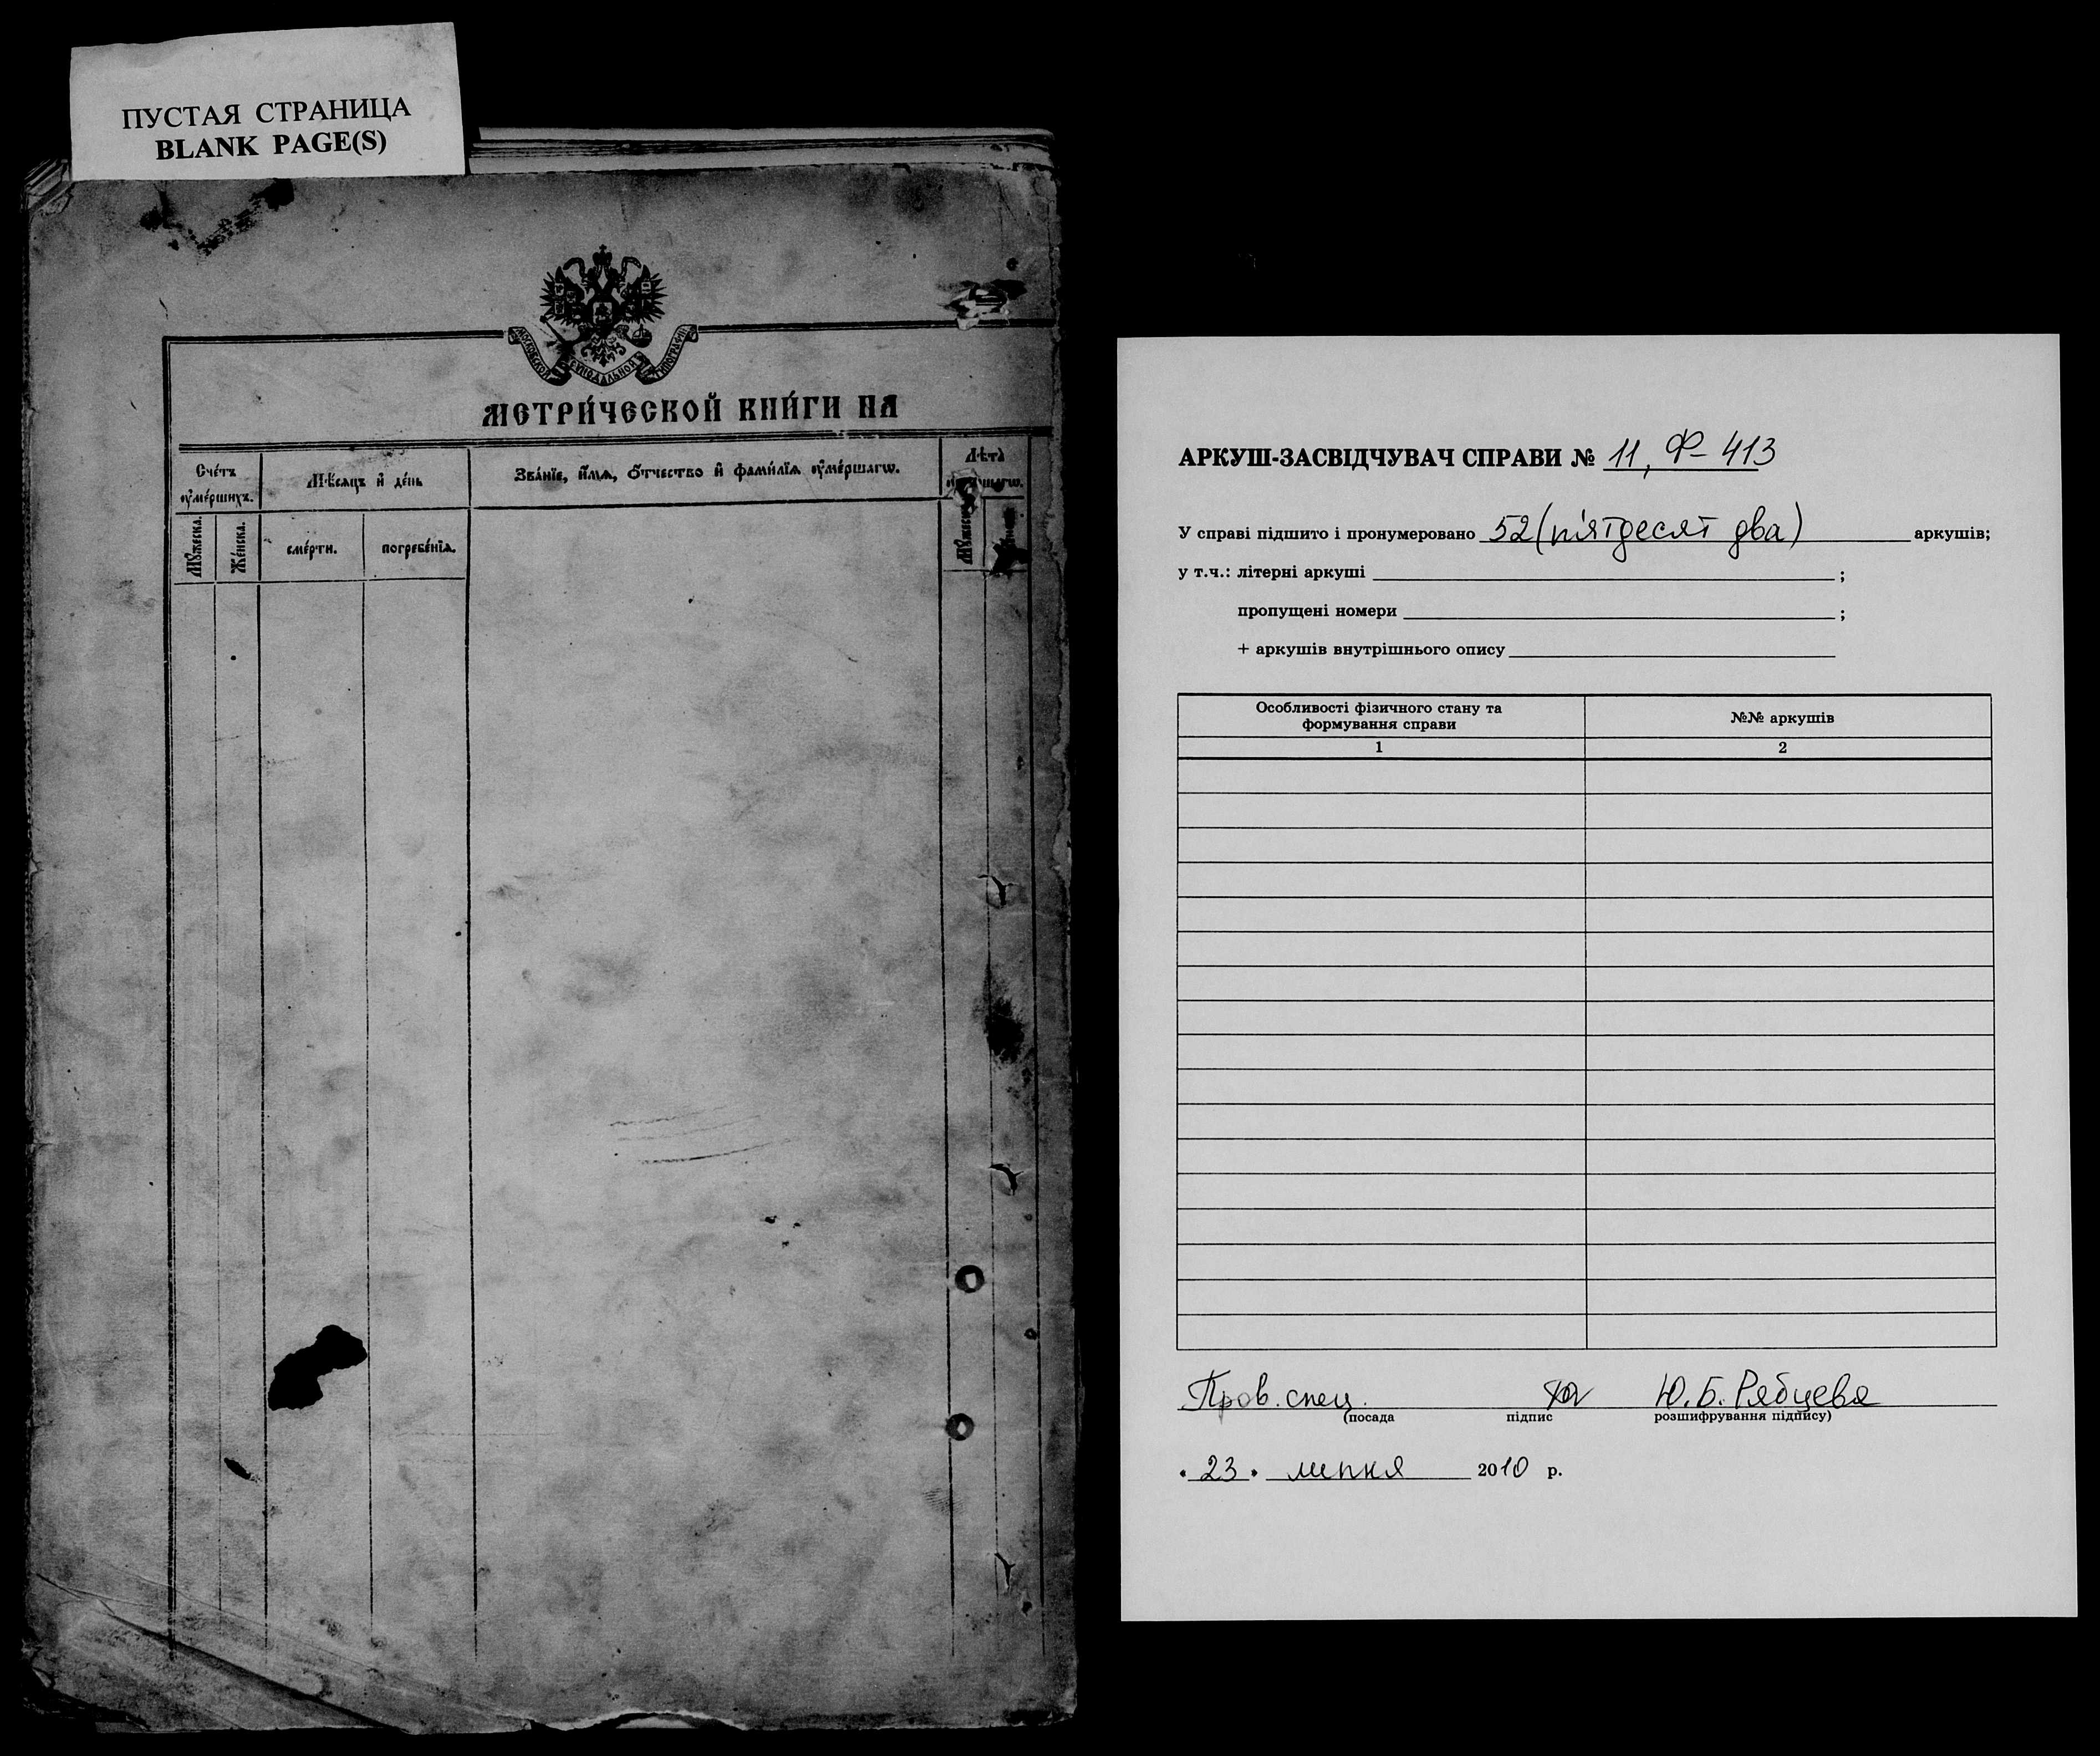 ПУСТАЯ СТРАНИЦА
BLANK PAGE(S)
МОСКОВСКОЙ СѴНОДАЛЬНОЙ ТИПОГРАФІИ
МЕТРИ́ЧЕСКОЙ КНИ́ГИ НА
Сче́тъ ᲂу҆ме́ршихъ.
Мѣ́сяцъ и҆ де́нь
Зва́нїе, и҆́мѧ, ѻ҆́тчество и҆ фами́лїѧ ᲂу҆ме́ршагѡ.
Лѣ́та
Мꙋ́жеска.
Же́нска.
сме́рти.
погребе́нїѧ.
АРКУШ-ЗАСВІДЧУВАЧ СПРАВИ № 11, Ф-413
У справі підшито і пронумеровано 52 (п'ятдесят два) аркушів;
у т.ч.: літерні аркуші ;
пропущені номери ;
+ аркушів внутрішнього опису
Особливості фізичного стану та формування справи
№№ аркушів
1
2
Пров. спец. Ю.Б. Рябцева
(посада підпис розшифрування підпису)
"23" липня 2010 р.